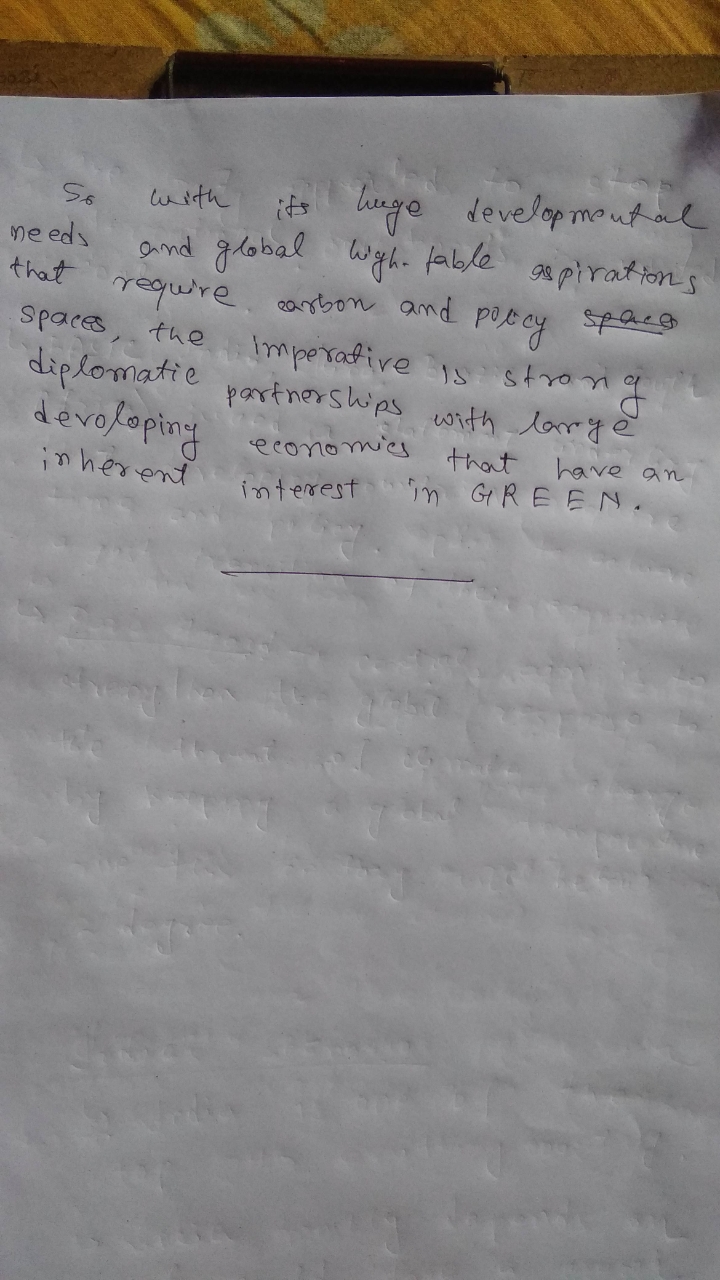 So with its huge developmental
needs and global high-table aspirations
that require carbon and policy spaces
spaces, the imperative is strong
diplomatic partnerships with large
devoloping economies that have an
inherent interest in GREEN.